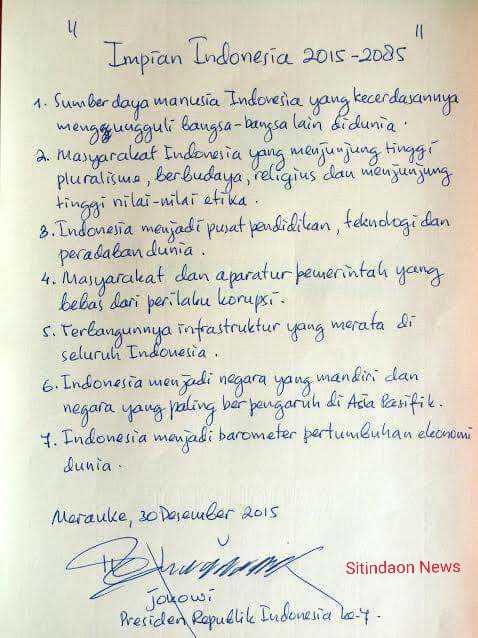 " Impian Indonesia 2015-2085 "
1. Sumber daya manusia Indonesia yang kecerdasannya
mengungguli bangsa-bangsa lain di dunia.
2. Masyarakat Indonesia yang menjunjung tinggi
pluralisme, berbudaya, religius dan menjunjung
tinggi nilai-nilai etika.
3. Indonesia menjadi pusat pendidikan, teknologi dan
peradaban dunia.
4. Masyarakat dan aparatur pemerintah yang
bebas dari perilaku korupsi.
5. Terbangunnya infrastruktur yang merata di
seluruh Indonesia.
6. Indonesia menjadi negara yang mandiri dan
negara yang paling berpengaruh di Asia Pasifik.
7. Indonesia menjadi barometer pertumbuhan ekonomi
dunia.
Merauke, 30 Desember 2015
Sitindaon News
Jokowi
Presiden Republik Indonesia ke-7.